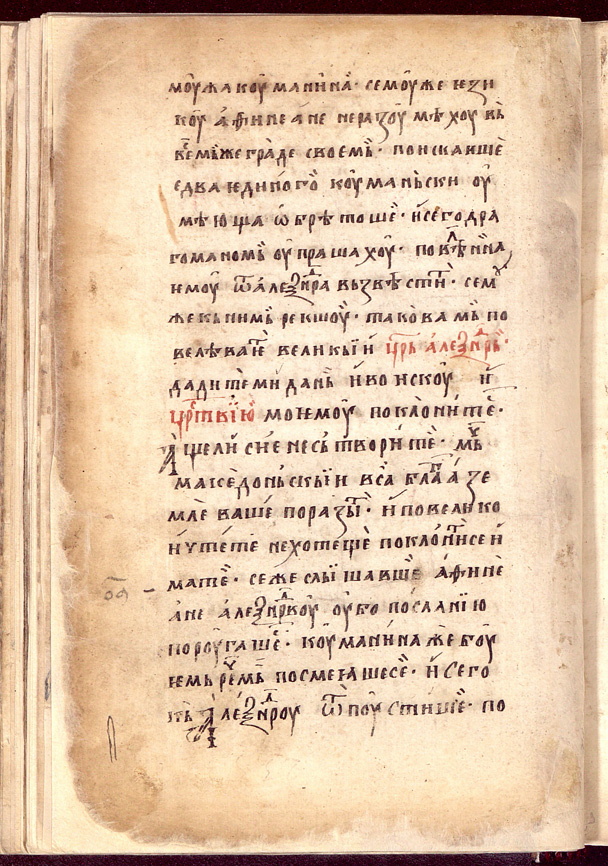 моужа коуманина̀· семоуже ѥзи
коу аѳинеане неразоумѣхоу въ
въсемь же граде своемь· поискавше
едва ѥдиного̀ коуманьски оу
мѣюща ѡбрѣтоше· и сего дра
гоманомь оупрашахоу· повелѣннаꙗ
ѥмоу ѿ алеѯндра възвѣстити· семоу
же кь нимь рекшоу· тако вамь по
велѣваѥть великыи царь алеѯандрь·
дадите ми дань и воискоу и
царствїю моѥмоу поклоните·
Аще ли сиѥ не сьтворите· мꙋ
македоньскыи вса блага зе
мле ваше поразыть· и по велико
и чтете не хотеще поклонитисе и
мате· сеже слышавше аѳине
ане алеѯандркоу оубо посланїю
пороугаше· коуманина же боу
ѥмь посмеꙗшесе· и сего
кь Алеѯандроу ѿпоустише· по